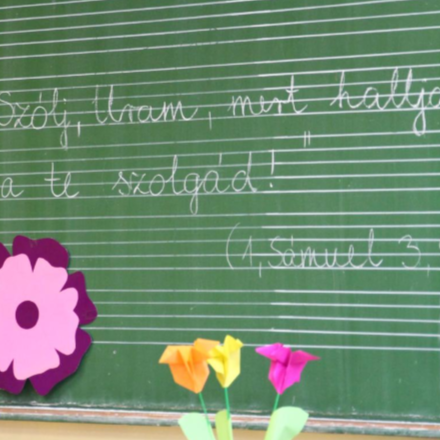 Szólj, Uram, mert hallja
a te szolgád!
(1, Sámuel 3,